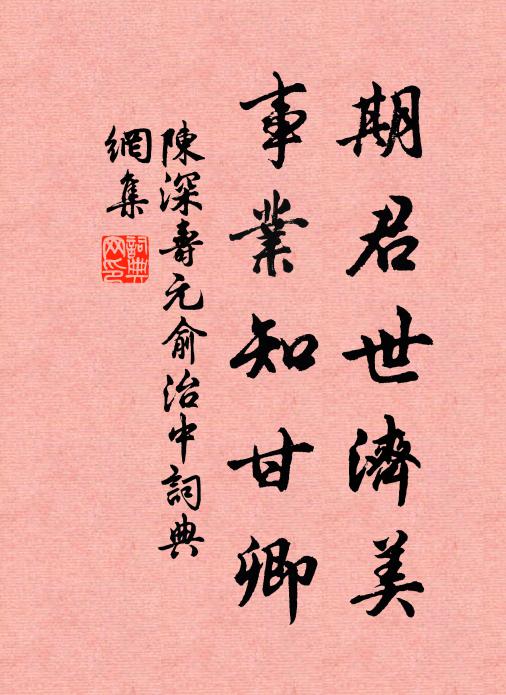 期君世濟美
事業知甘卿
陳深壽元俞治中詞典
網集
詞典
网印